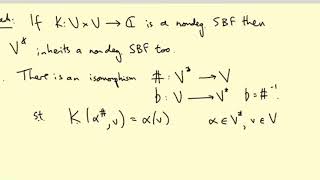 If K: V × V → ℂ is a nondeg SBF then
V* inherits a nondeg SBF too.
There is an isomorphism # : V* → V
b : V → V* b = #⁻¹.
st. K(α^#, v) = α(v) α ∈ V*, v ∈ V